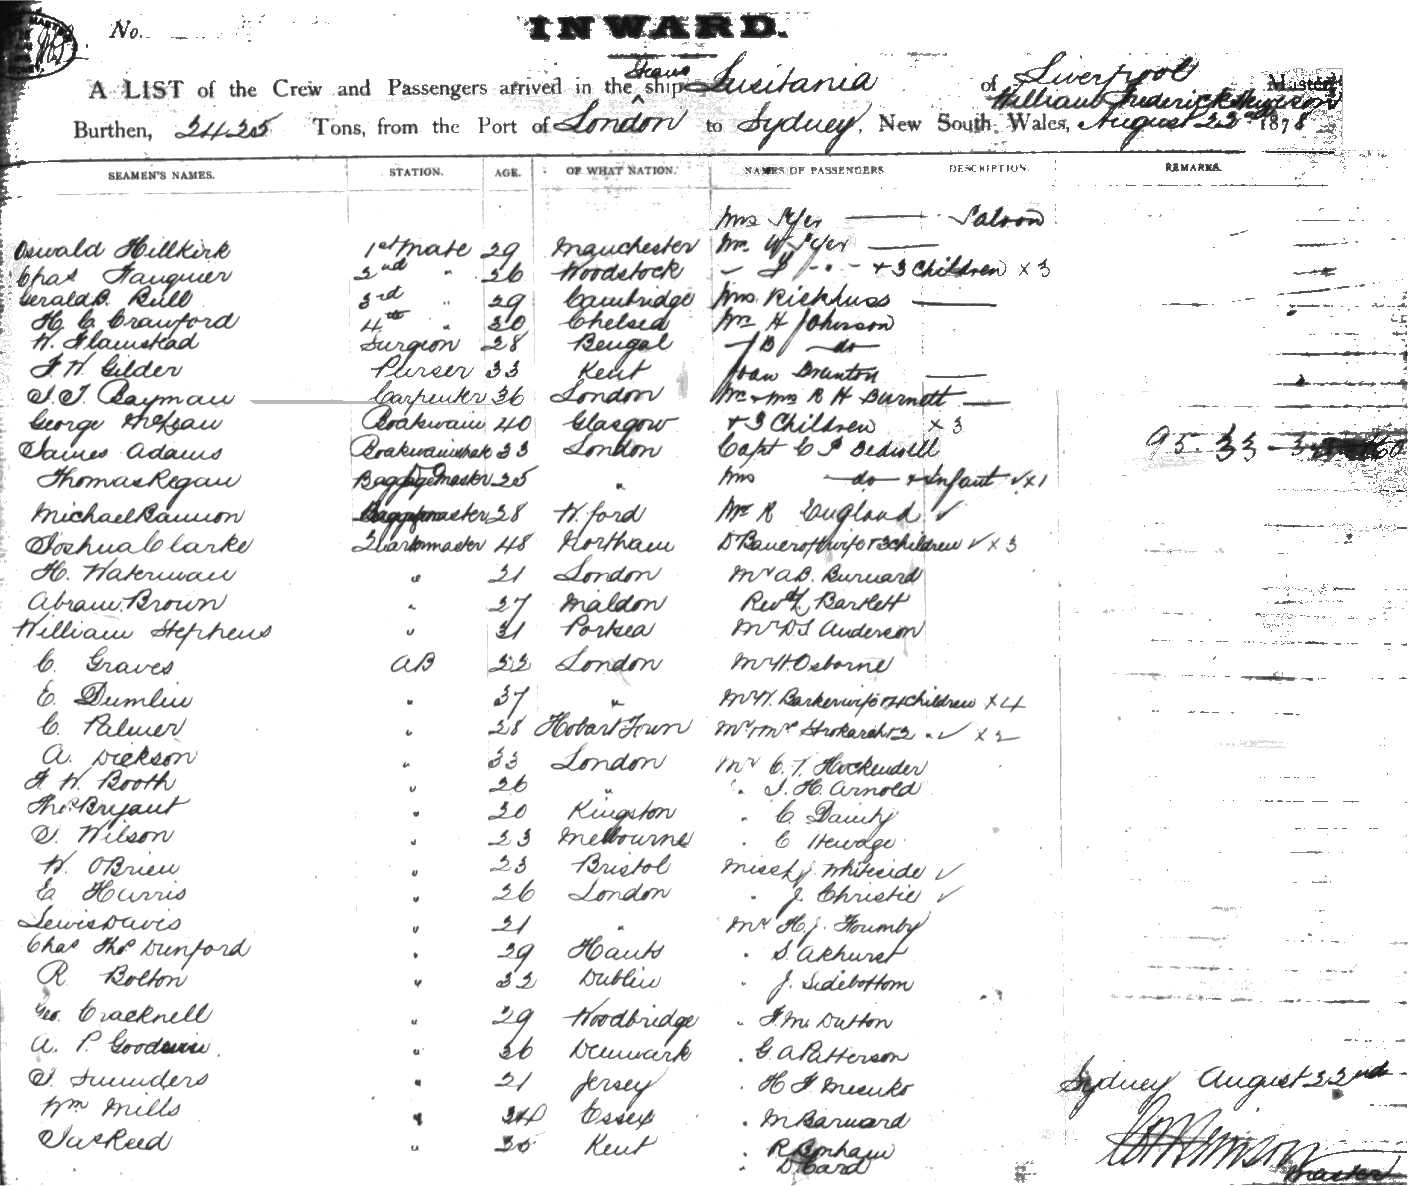 No.
INWARD.
A LIST of the Crew and Passengers arrived in the Steam ship Lusitania of Liverpool Master
William Frederick
Burthen, 2425 Tons, from the Port of London to Sydney, New South Wales, August 22nd 1878
SEAMEN'S NAMES. STATION. AGE. OF WHAT NATION. NAMES OF PASSENGERS DESCRIPTION. REMARKS.
Mrs Syer Saloon
Oswald Hillkirk 1st Mate 29 Manchester Mr W Syer
Chas Fauquier 2nd " 26 Woodstock + 3 Children x 3
Gerald B. Bull 3rd " 29 Cambridge Mrs Rickhuss
H. C. Crawford 4th " 30 Chelsea Mr H Johnson
W. Flamstead Surgeon 28 Bengal J B do
F. W. Gilder Purser 33 Kent Joan Brunton
S. T. Bayman Carpenter 36 London Mr + Mrs R H Burnett
George McEwan Boatswain 40 Glasgow + 3 Children x 3
James Adams Boatswains Mate 33 London Capt C P Bedwell 95. 33
Thomas Regan Baggage Master 25 " Mrs do + Infant ✓ x 1
Michael Bannon Baggagemaster 28 W.ford Mr R England ✓
Joshua Clarke Quartermaster 48 Northam D Bancroft wife + 3 children ✓ x 3
H. Waterman " 21 London Mr A B. Burnard
Abram Brown " 27 Maldon Revd Bartlett
William Stephens " 31 Portsea Mr D S Anderson
C. Graves AB 22 London Mr H Osborne
E. Dumlin " 37 " Mr W. Barker wife + 4 children x 4
C. Palmer " 28 Hobart Town Mr + Mrs + 2 ✓ x 2
A. Dickson " 33 London Mr C. T. Hockender
F W. Booth " 26 " " T. H. Arnold
Thos Bryant " 20 Kingston " C Dainty
S. Wilson " 23 Melbourne " C Hewage
W. O'Brien " 23 Bristol Miss J. Whiteside ✓
E Harris " 26 London " J. Christie ✓
Lewis Davis " 21 " Mr H. J. Formby
Chas Thos Dunford " 29 Hants " S. Akhurst
R Bolton " 32 Dublin " J. Sidebottom
Geo. Cracknell " 29 Woodbridge " F. M. Dutton
A. P. Goodwin " 26 Denmark " G. A Patterson
S. Saunders " 21 Jersey " H F Mesuko
Sydney August 22nd
Wm Mills " 24 Essex " M Barnard
Jas Reed " 25 Kent " R Bonham
" D Card
Master